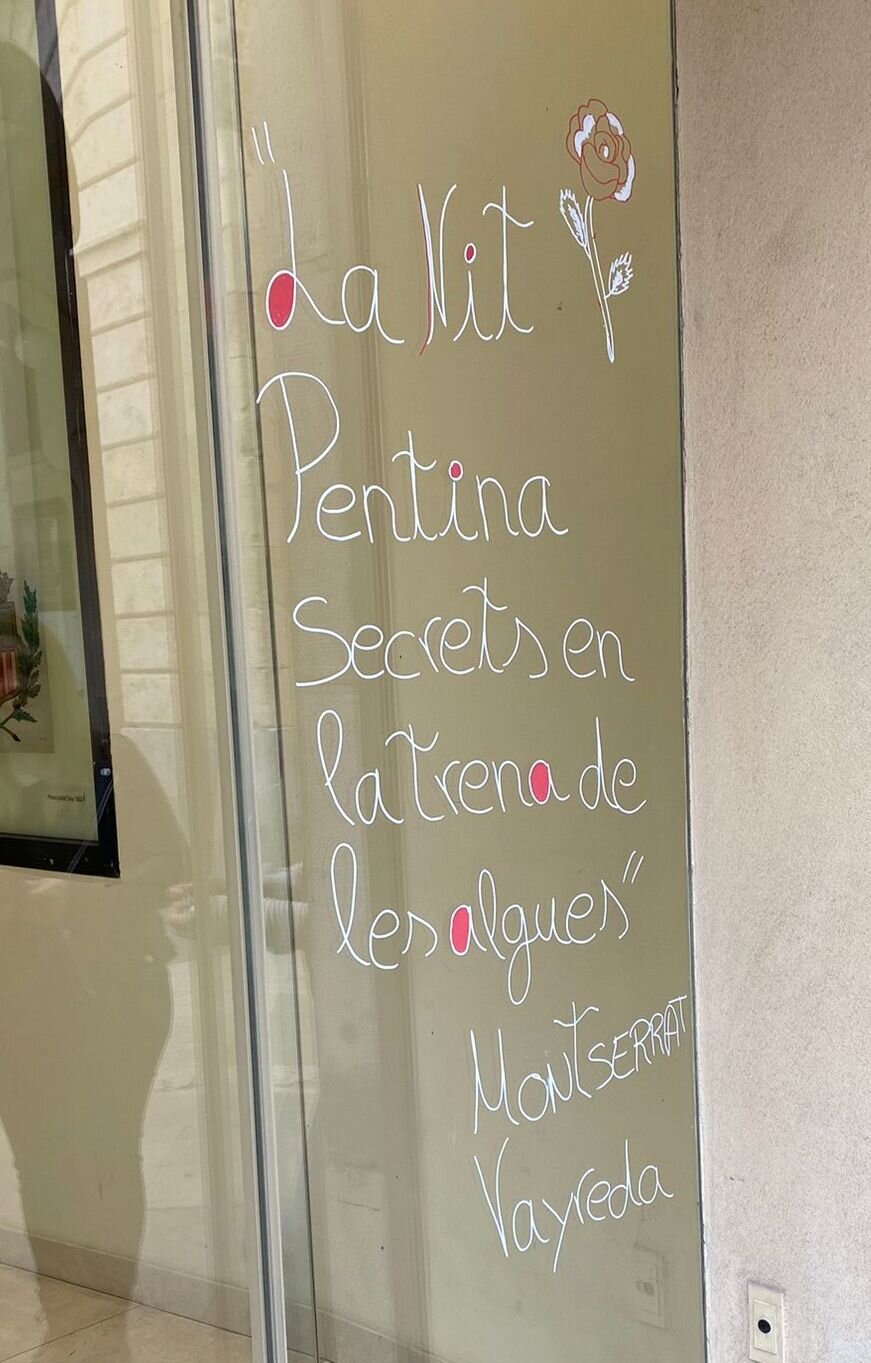 "La Nit
Pentina
Secrets en
la trena de
les algues"
MONTSERRAT
Vayreda